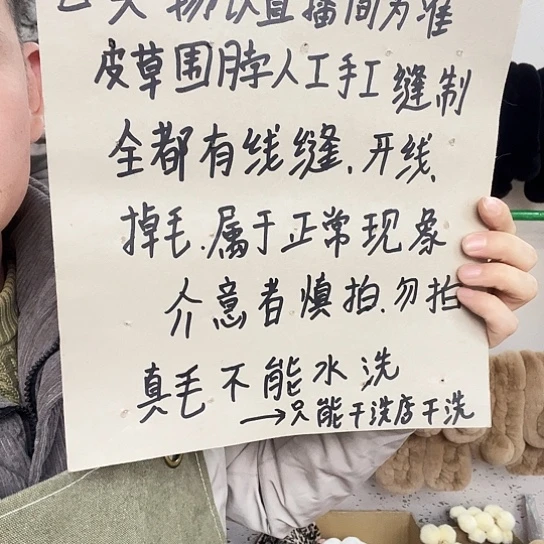 实物以直播间为准
皮草围脖人工手工缝制
全都有线缝、开线、
掉毛、属于正常现象
介意者慎拍、勿拍
真毛不能水洗
→只能干洗店干洗